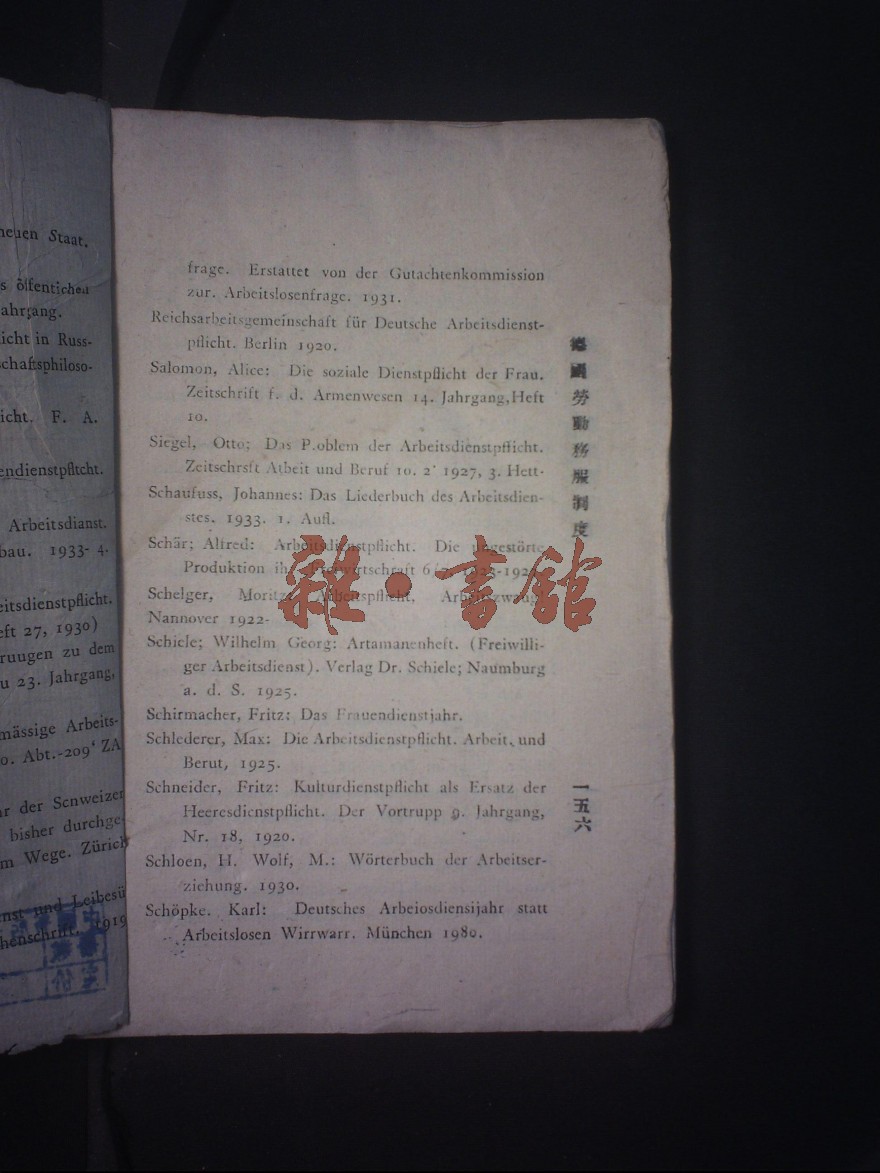 neuen Staat.
s öffentichen
ahrgang.
icht in Russ-
schaftsphiloso-
icht. F. A.
endienstpfltcht.
Arbeitsdianst.
bau. 1933- 4.
eitsdienstpflicht.
eft 27, 1930)
ruugen zu dem
u 23. Jahrgang,
mässige Arbeits-
o. Abt.-209' ZA
r der Scnweizer
bisher durchge-
m Wege. Zürich
nst und Leibesü
henschrift. 1919
frage. Erstattet von der Gutachtenkommission
zur. Arbeitslosenfrage. 1931.
Reichsarbeitsgemeinschaft für Deutsche Arbeitsdienst-
pflicht. Berlin 1920.
Salomon, Alice: Die soziale Dienstpflicht der Frau.
Zeitschrift f. d. Armenwesen 14. Jahrgang,Heft
10.
Siegel, Otto; Das P.oblem der Arbeitsdienstpfficht.
Zeitschrsft Atbeit und Beruf 10. 2' 1927, 3. Hett-
Schaufuss, Johannes: Das Liederbuch des Arbeitsdien-
stes. 1933. 1. Aufl.
Schär; Alfred: Arbeitsdienstpflicht. Die ungestörte
Produktion Freiwirtschaft 6/7.
Schelger, Moritz: Arbeitspflicht, Arbeitszwang!
Nannover 1922-
Schiele; Wilhelm Georg: Artamanenheft. (Freiwilli-
ger Arbeitsdienst). Verlag Dr. Schiele; Naumburg
a. d. S. 1925.
Schirmacher, Fritz: Das Frauendienstjahr.
Schlederer, Max: Die Arbeitsdienstpflicht. Arbeit, und
Berut, 1925.
Schneider, Fritz: Kulturdienstpflicht als Ersatz der
Heeresdienstpflicht. Der Vortrupp 9. Jahrgang,
Nr. 18, 1920.
Schloen, H. Wolf, M.: Wörterbuch der Arbeitser-
ziehung. 1930.
Schöpke. Karl: Deutsches Arbeiosdiensijahr statt
Arbeitslosen Wirrwarr. München 1980.
德國勞動務服制度
一五六
雜·書館